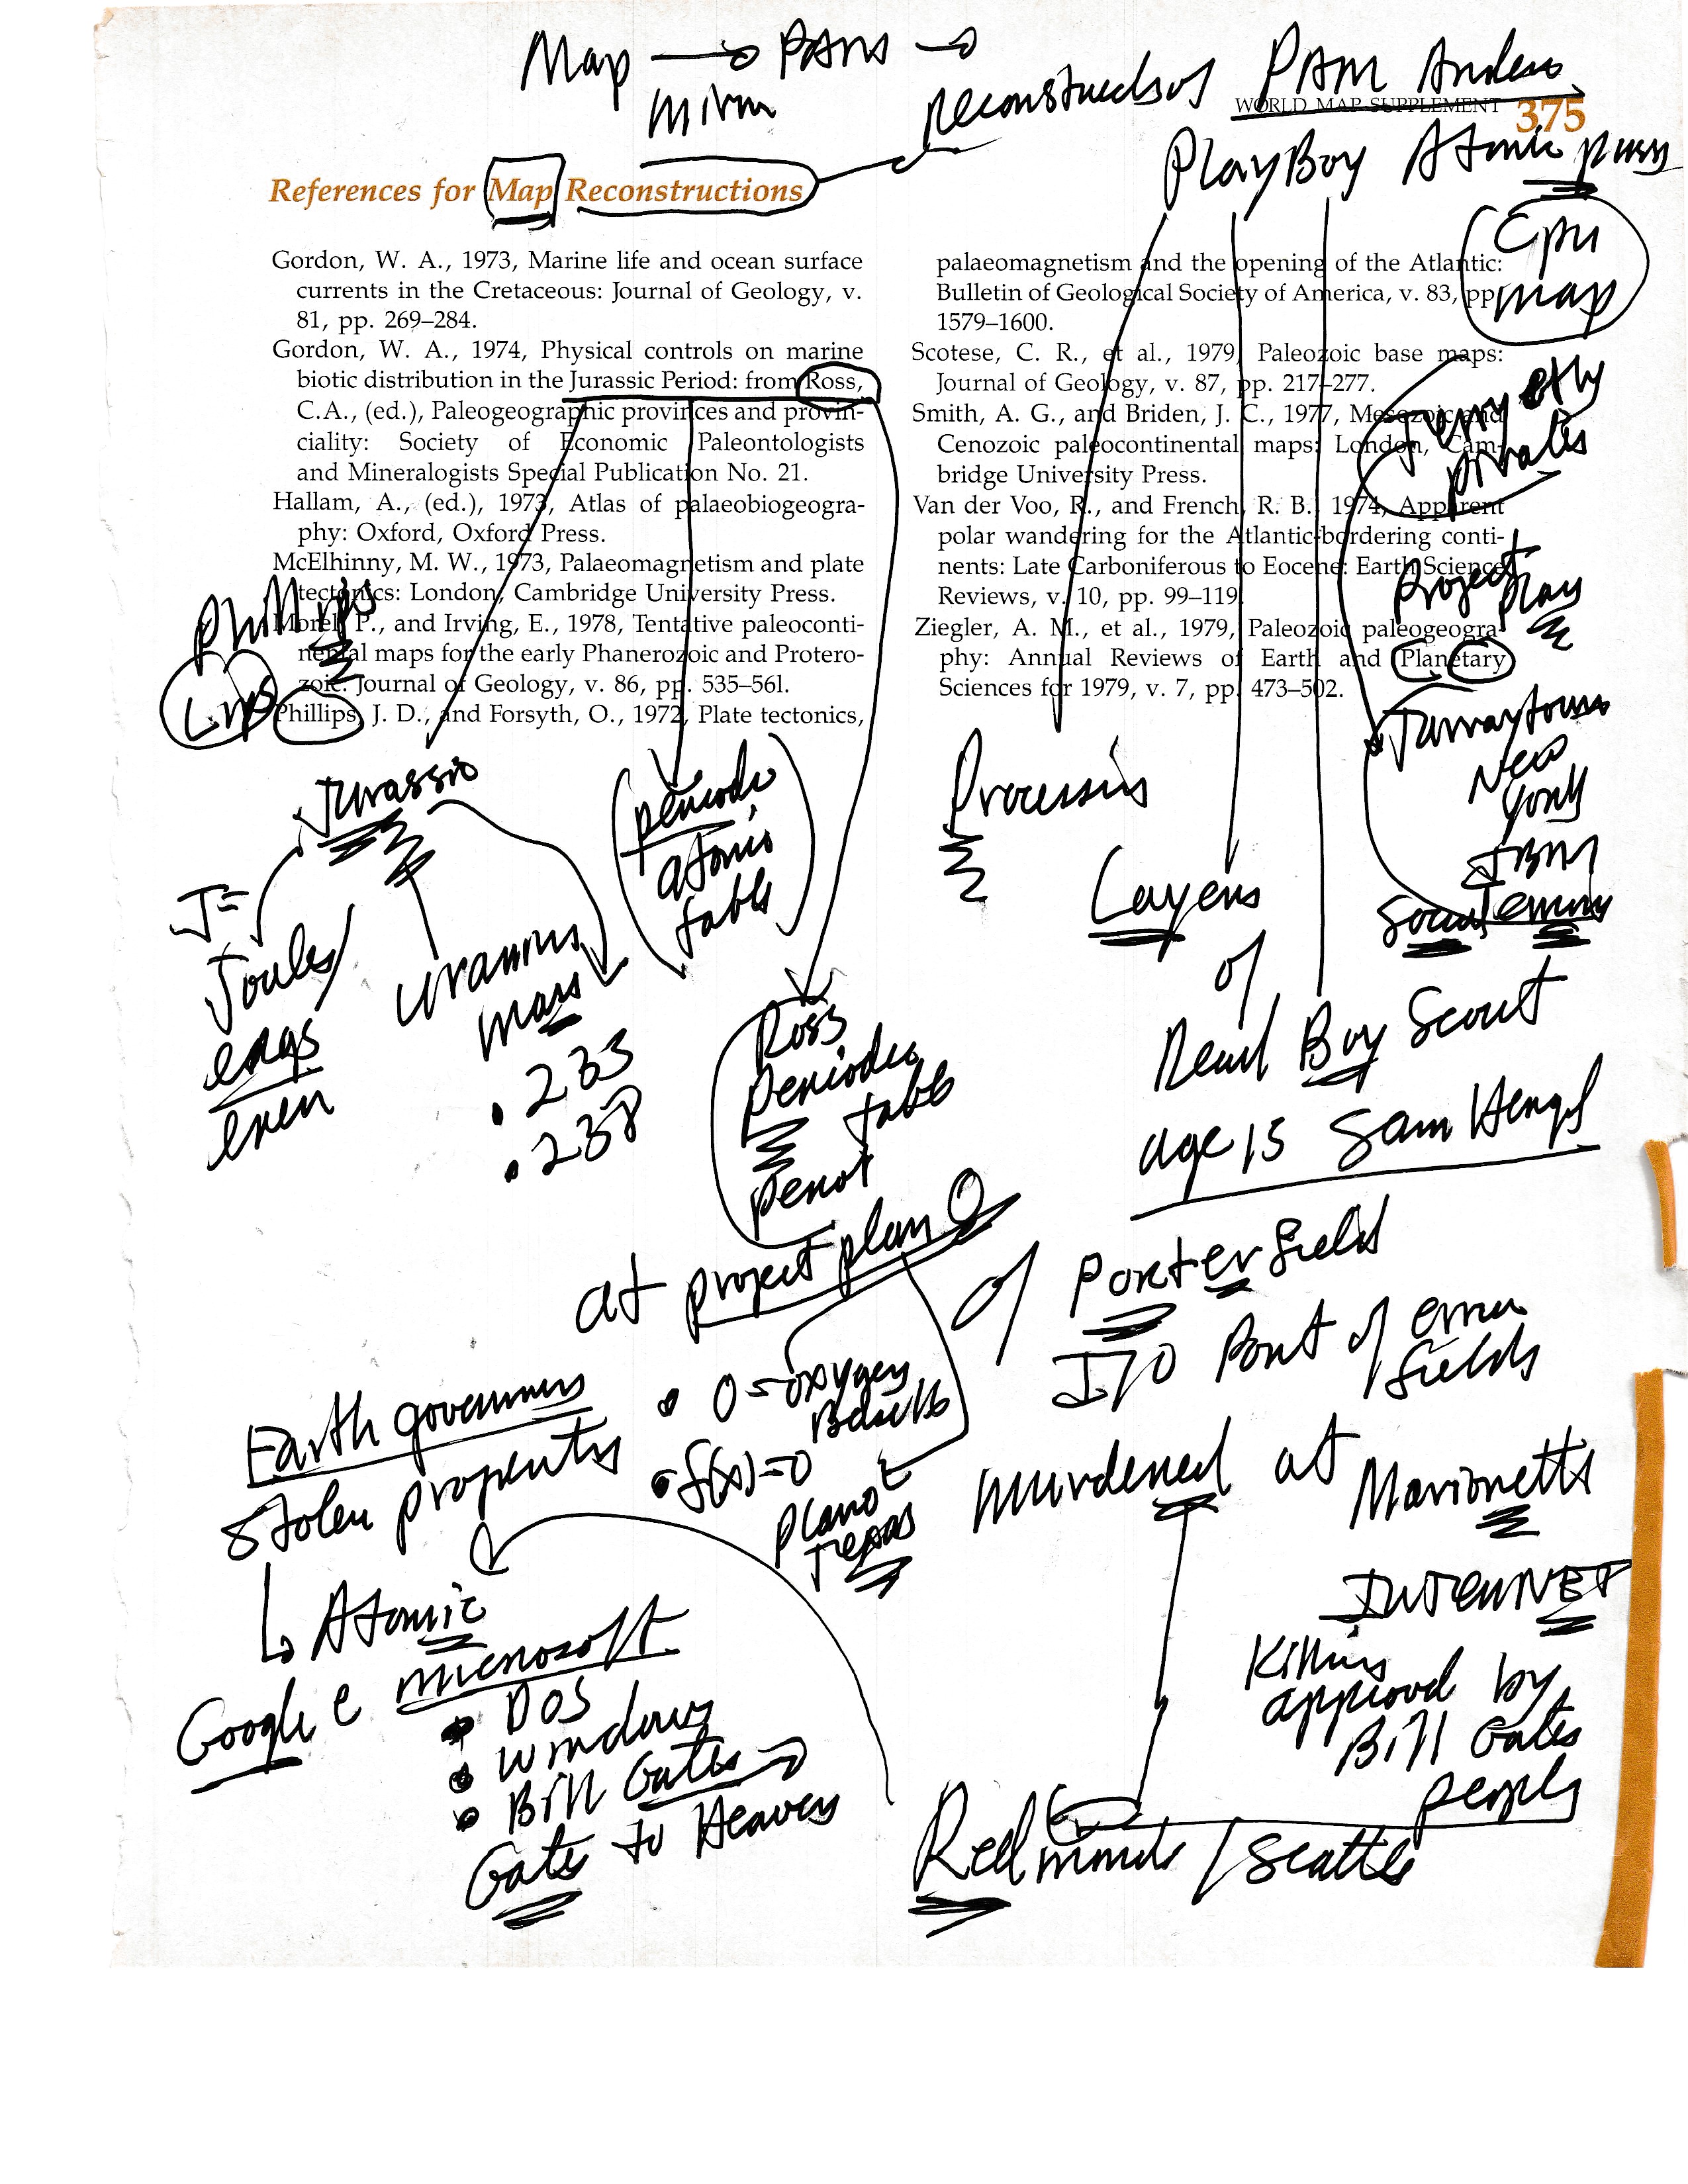 Map → PARIS →
mirm
reconstructs of PAM Anders
WORLD MAP SUPPLEMENT 375
PlayBoy Atomic
References for Map Reconstructions
Cpu
map
Gordon, W. A., 1973, Marine life and ocean surface
currents in the Cretaceous: Journal of Geology, v.
81, pp. 269–284.
Gordon, W. A., 1974, Physical controls on marine
biotic distribution in the Jurassic Period: from Ross,
C.A., (ed.), Paleogeographic provinces and provin-
ciality: Society of Economic Paleontologists
and Mineralogists Special Publication No. 21.
Hallam, A., (ed.), 1973, Atlas of palaeobiogeogra-
phy: Oxford, Oxford Press.
McElhinny, M. W., 1973, Palaeomagnetism and plate
tectonics: London, Cambridge University Press.
Morel, P., and Irving, E., 1978, Tentative paleoconti-
nental maps for the early Phanerozoic and Protero-
zoic: Journal of Geology, v. 86, pp. 535–561.
Phillips, J. D., and Forsyth, O., 1972, Plate tectonics,
palaeomagnetism and the opening of the Atlantic:
Bulletin of Geological Society of America, v. 83, pp.
1579–1600.
Scotese, C. R., et al., 1979, Paleozoic base maps:
Journal of Geology, v. 87, pp. 217–277.
Smith, A. G., and Briden, J. C., 1977, Mesozoic and
Cenozoic paleocontinental maps: London, Cam-
bridge University Press.
Van der Voo, R., and French, R. B., 1974, Apparent
polar wandering for the Atlantic-bordering conti-
nents: Late Carboniferous to Eocene: Earth Science
Reviews, v. 10, pp. 99–119.
Ziegler, A. M., et al., 1979, Paleozoic paleogeogra-
phy: Annual Reviews of Earth and Planetary
Sciences for 1979, v. 7, pp. 473–502.
Phillips
Lips
Project
Plans
Tarrytown
New
York
IBM
Social
Jurassic
J=
Joules
ergs
uranium
mass
. 233
. 238
(periodic
atomic
table)
Ross
periodic
table
perot
at project plan O
• O = oxygen
• f(x)=0
Plano
Texas
Processing
Layers
of
Read Boy Scout
age 15 Sam
of Porterfield
I/O Port of error
fields
murdened at Marionetts
INTERNET
Killing
approved by
Bill Gates
people
Redmond / Seattle
Earth governms
stolen property
↳ Atomic
Google e microsoft
• DOS
• windows
• Bill Gates →
Gate to Heaven